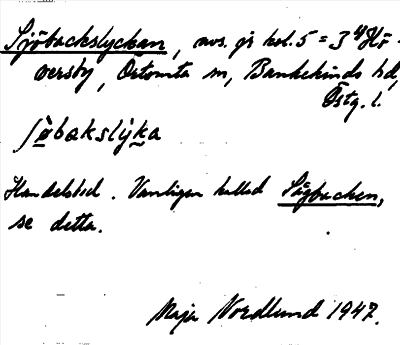 Sjöbackslyckan, avs. på kol. 5 = 3⁴ Hö-
versby, Östomta sn, Bankekinds hd,
Östg. l.
ʃö̀bakslýka
Handelsbod. Vanligen kallad Sågbacken,
se detta.
Maja Nordlund 1947.